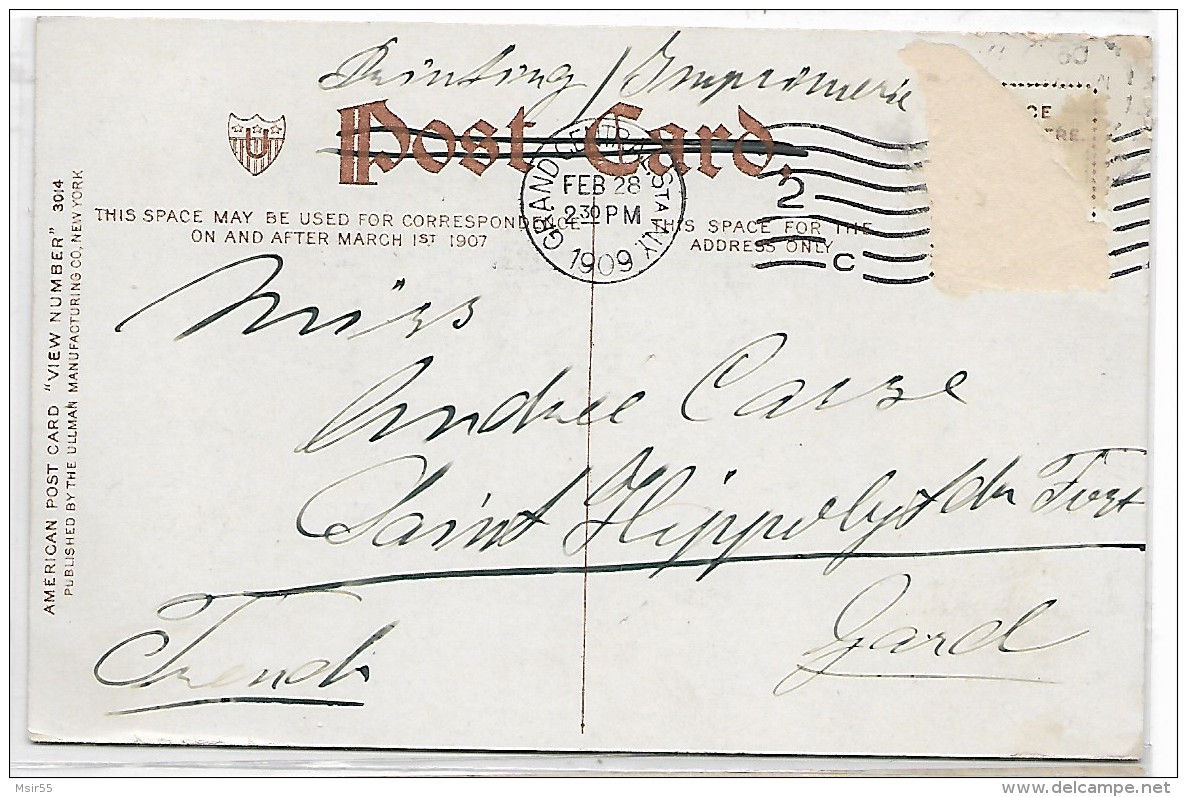 Printing / Imprimerie
U
Post Card.
GRAND CENTRAL STA. N.Y.
FEB 28
2 30 PM
1909
2
C
CE
TRE.
THIS SPACE MAY BE USED FOR CORRESPONDENCE
ON AND AFTER MARCH 1ST 1907
THIS SPACE FOR THE
ADDRESS ONLY
AMERICAN POST CARD "VIEW NUMBER" 3014
PUBLISHED BY THE ULLMAN MANUFACTURING CO, NEW YORK
Miss
Andrée
Saint Hippolyte du Fort
Gard
French
Msir55
delcampe.net